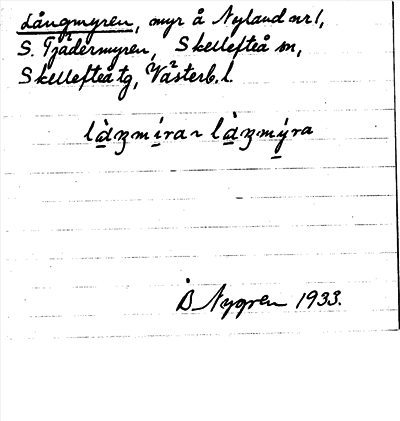 Långmyren, myr å Nyland nr 1,
S. Tjädermyren, Skellefteå sn,
Skellefteå tg, Västerb. l.
làŋmíra ~ làŋmýra
B Nygren 1933.